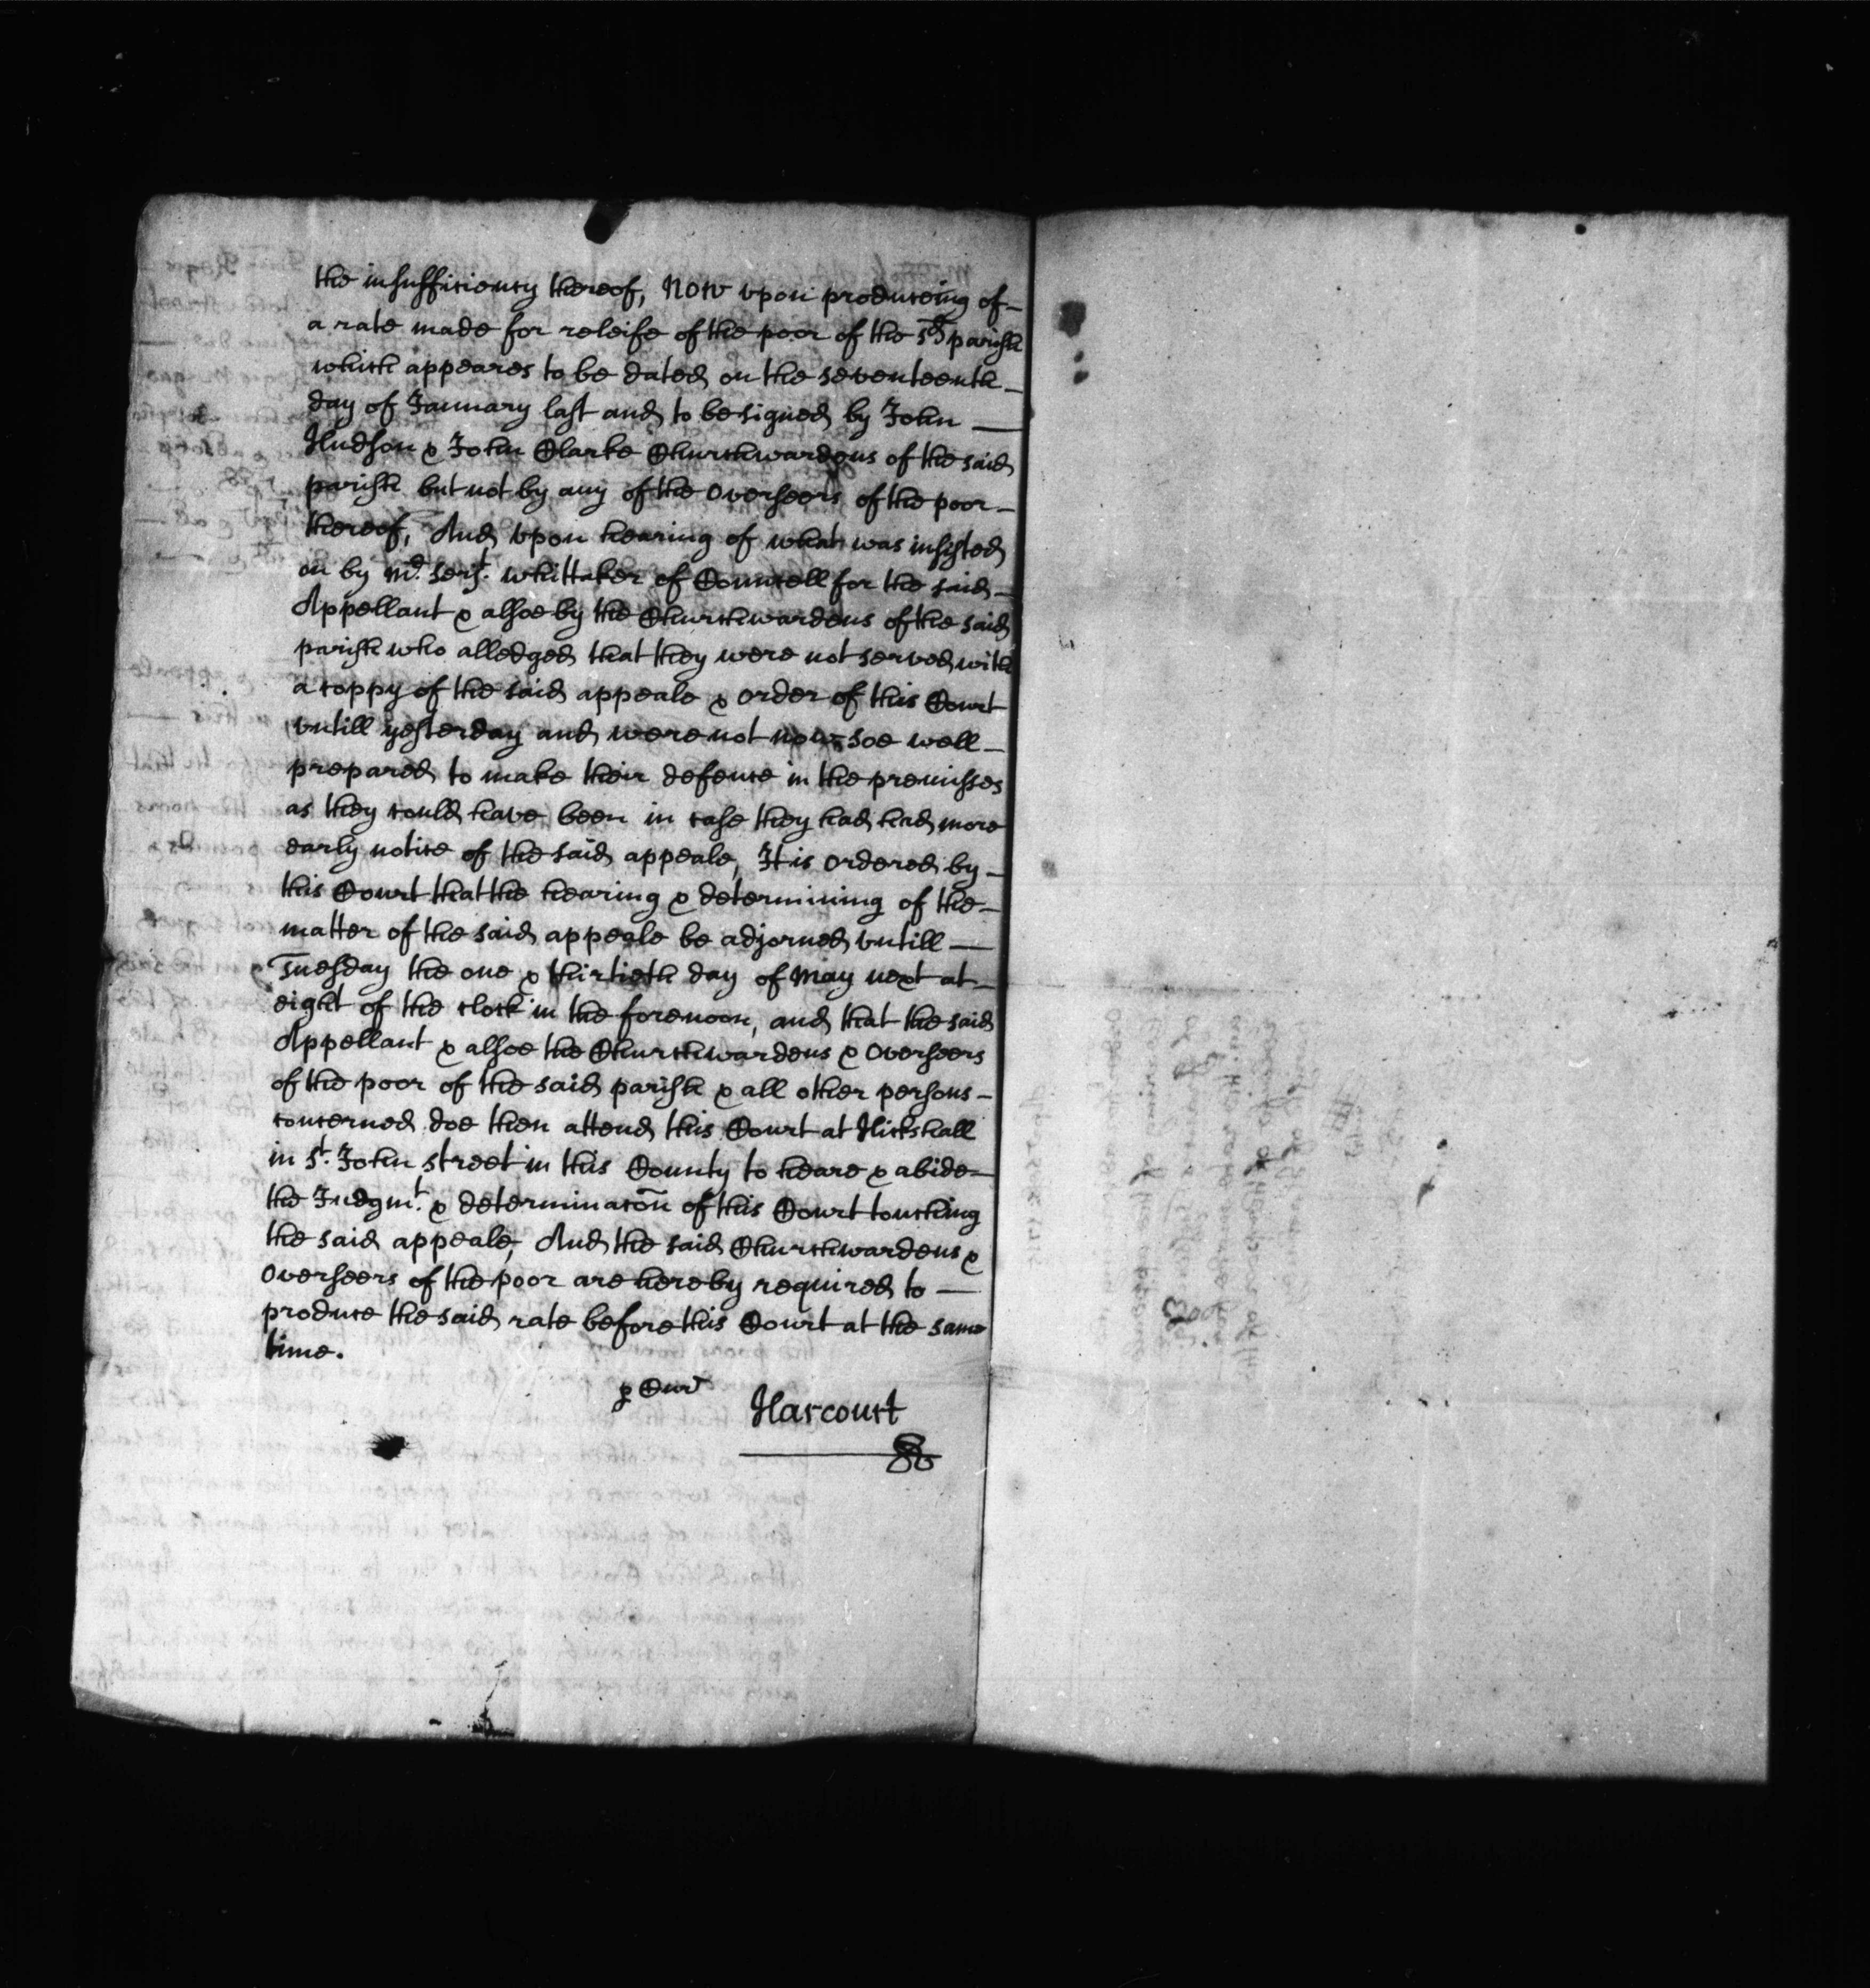 the insufficiency thereof, Now vpon produceing of
a rate made for releife of the poor of the sd parish
which appeares to be dated on the seventeenth
day of January last and to be signed by John
Hudson & John Clarke Churchwardens of the said
parish but not by any of the Overseers of the poor
thereof, And vpon hearing of what was insisted
on by Mr. Serjt. Whittaker of Councell for the said
Appellant & alsoe by the Churchwardens of the said
parish who alledged that they were not served with
a coppy of the said appeale & order of this Court
vntill yesterday and were not now soe well
prepared to make their defence in the premisses
as they could have been in case they had had more
early notice of the said appeale, It is Ordered by
this Court that the hearing & determining of the
matter of the said appeale be adjorned vntill
Tuesday the one & thirtieth day of May next at
eight of the clock in the forenoon, and that the said
Appellant & alsoe the Churchwardens & Overseers
of the poor of the said parish & all other persons
concerned doe then attend this Court at Hickshall
in St. John Street in this County to heare & abide
the Judgmt. & determinacon of this Court touching
the said appeale, And the said Churchwardens &
Overseers of the poor are hereby required to
produce the said rate before this Court at the same
time.
p Cur
Harcourt